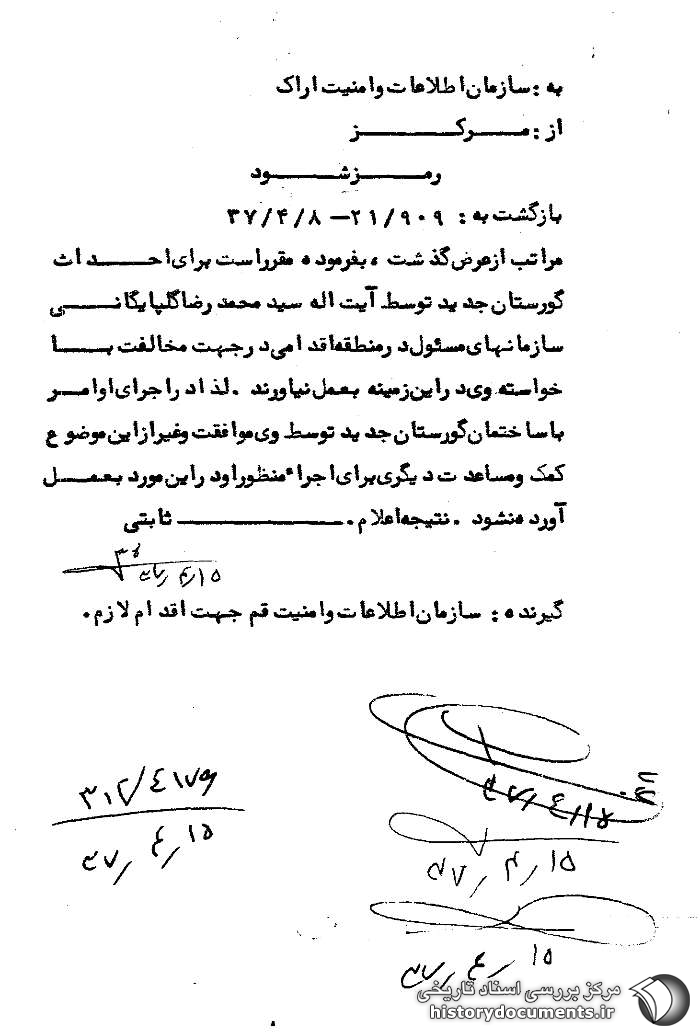 به : سازمان اطلاعات و امنیت اراک
از : مـــرکـــــــز
رمـــــزشـــــود
بازگشت به : ۲۱/۹۰۹ — ۳۷/۴/۸
مراتب از عرض گذشت ، بفرموده مقرر است برای احـــداث
گورستان جدید توسط آیت اله سید محمد رضا گلپایگانــی
سازمانهای مسئول در منطقه اقدامی در جهت مخالفت بــا
خواسته وی در این زمینه بعمل نیاورند . لذا در اجرای اوامــر
با ساختمان گورستان جدید توسط وی موافقت و غیر از این موضوع
کمک و مساعدت دیگری برای اجراء منظور او در این مورد بعمــل
آورده نشود . نتیجه اعلام . ــــــــــــ ثابتی
۴۷/۴/۱۵
گیرنده : سازمان اطلاعات و امنیت قم جهت اقدام لازم .
۴۷/۴/۱۵
۴۷/۴/۱۵
۴۷/۴/۱۵
مرکز بررسی اسناد تاریخی
historydocuments.ir